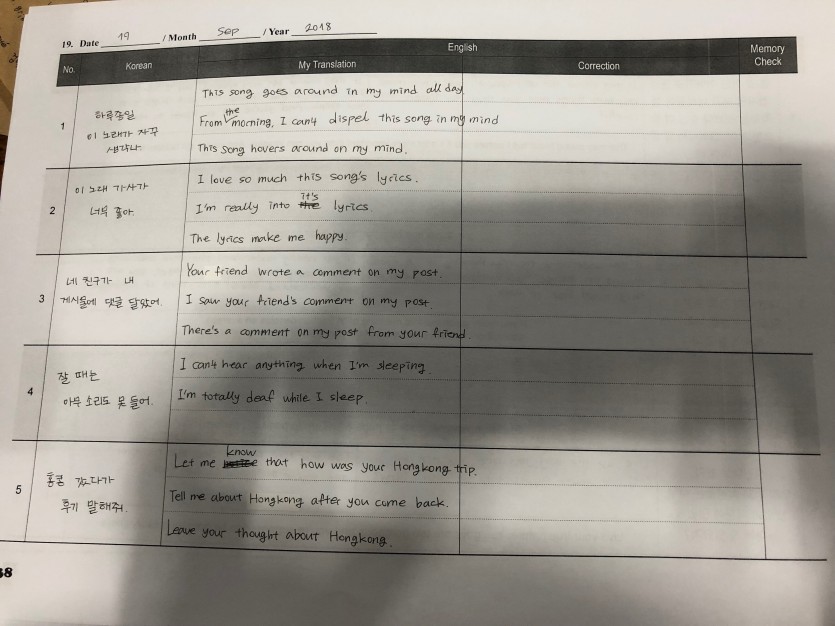 19. Date 19 / Month Sep / Year 2018
No. Korean English Memory Check
My Translation Correction
1 하루종일 이 노래가 자꾸 생각나.
This song goes around in my mind all day
From the morning, I can't dispel this song in my mind
This song hovers around on my mind.
2 이 노래 가사가 너무 좋아.
I love so much this song's lyrics.
I'm really into it's lyrics
The lyrics make me happy.
3 네 친구가 내 게시물에 댓글 달았어.
Your friend wrote a comment on my post.
I saw your friend's comment on my post.
There's a comment on my post from your friend.
4 잘 때는 아무 소리도 못 들어.
I can't hear anything when I'm sleeping.
I'm totally deaf while I sleep.
5 홍콩 갔다가 후기 말해줘.
Let me know that how was your Hongkong trip.
Tell me about Hongkong after you come back.
Leave your thought about Hongkong.